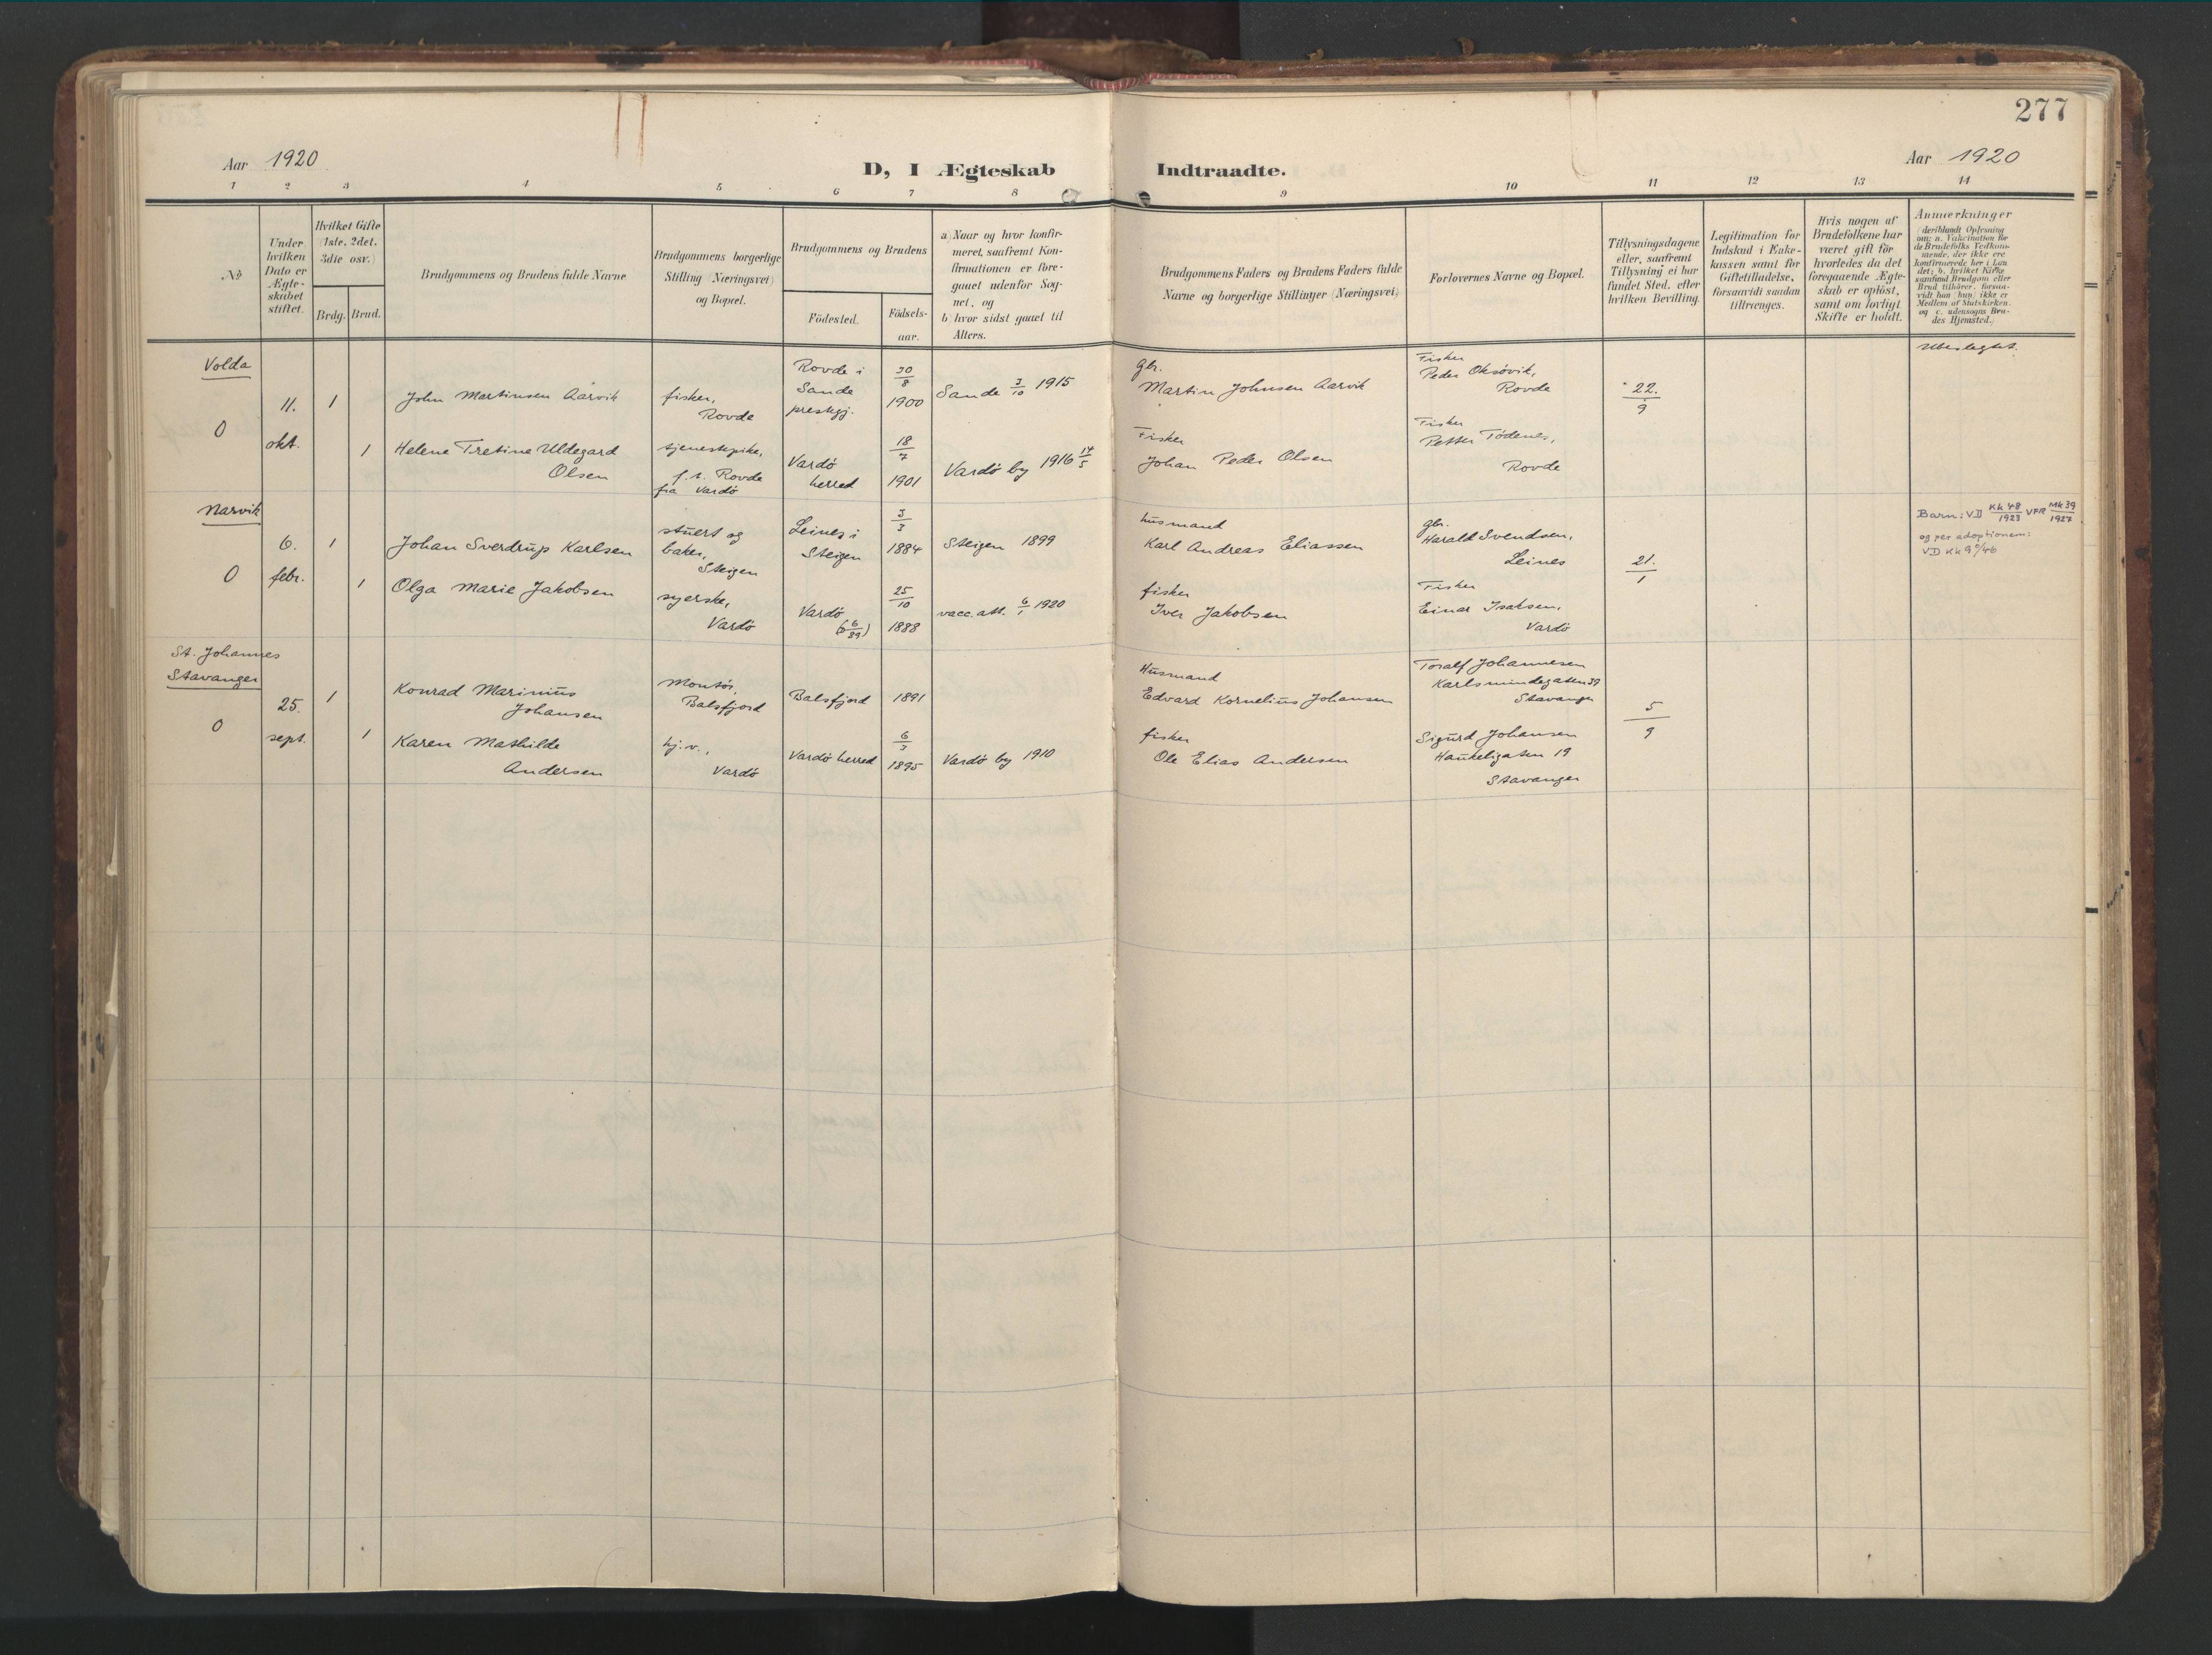 277
Aar 1920
D, I Ægteskab Indtraadte.
Aar 1920
1 2 3 4 5 6 7 8 9 10 11 12 13 14
No
Under
hvilken
Dato er
Ægte-
skabet
stiftet.
Hvilket Gifte
(1ste, 2det,
3die osv.)
Brdg. Brud.
Brudgommens og Brudens fulde Navne
Brudgommens borgerlige
Stilling (Næringsvei)
og Bopæl.
Brudgommens og Brudens
Födested.
Födsels-
aar.
a) Naar og hvor konfir-
meret, saafremt Kon-
firmationen er fore-
gaaet udenfor Sog-
net, og
b) hvor sidst gaaet til
Alters.
Brudgommens Faders og Brudens Faders fulde
Navne og borgerlige Stillinger (Næringsvei)
Forlovernes Navne og Bopæl.
Tillysningsdagene
eller, saafremt
Tillysning ei har
fundet Sted, efter
hvilken Bevilling.
Legitimation for
Indskud i Enke-
kassen samt for
Giftetilladelse,
forsaavidt saadan
tiltrænges.
Hvis nogen af
Brudefolkene har
været gift før
hvorledes da det
foregaaende Ægte-
skab er opløst,
samt om lovligt
Skifte er holdt.
Anmerkninger
(deriblandt Oplysning
om: a. Vakcination for
de Brudefolks Vedkom-
mende, der ikke ere
konfirmerede her i Lan
det; b. hvilket Kirke
samfund Brudgom eller
Brud tilhører, forsaa-
vidt han (hun) ikke er
Medlem af Statskirken.
og c. udensogns Bru-
des Hjemsted.)
Volda
0
11.
okt.
1
John Martinsen Aarvik
fisker,
Rovde
Rovde i
Sande
prestgj.
30/8
1900
Sande 3/10 1915
Gbr.
Martin Johnsen Aarvik
Fisker
Peder Oksövik,
Rovde
22./9
Ubeslegtet.
1
Helene Tretine Uldegard
Olsen
tjenestepike,
f.t. Rovde
fra Vardö
Vardö
herred
18/7
1901
Vardö by 1916 14/5
Fisker
Johan Peder Olsen
Fisker
Petter Tödenes,
Rovde
Narvik
0
6.
febr.
1
Johan Sverdrup Karlsen
stuert og
baker,
Steigen
Leines i
Steigen
3/3
1884
Steigen 1899
husmand
Karl Andreas Eliassen
gbr.
Harald Svendsen,
Leines
21./1
Barn: VD Kk 48/1923 VFR Mk 39/1927
og per adoptionem:
1
Olga Marie Jakobsen
syerske,
Vardö
Vardö
25/10
1888
vacc. att. 6/1 1920
fisker
Iver Jakobsen
Fisker
Einar Isaksen,
Vardö
St. Johannes
Stavanger
0
25.
sept.
1
Konrad Marinius
Johansen
Montör,
Balsfjord
Balsfjord
1891
Husmand
Edvard Kornelius Johansen
Toralf Johannesen
Karlsmindegaten 39
Stavanger
5/9
1
Karen Mathilde
Andersen
hj.v.,
Vardö
Vardö herred
6/3
1895
Vardö by 1910
fisker
Ole Elias Andersen
Sigurd Johansen
Haukeligaten 19
Stavanger